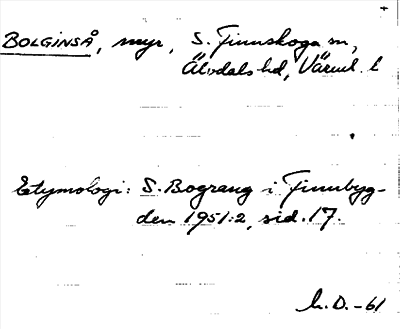 BOLGINSÅ, myr, S. Finnskoga sn,
Älvdals hd, Värml. l
Etymologi: S. Bograng i Finnbyg-
den 1951:2, sid. 17.
h.D. -61